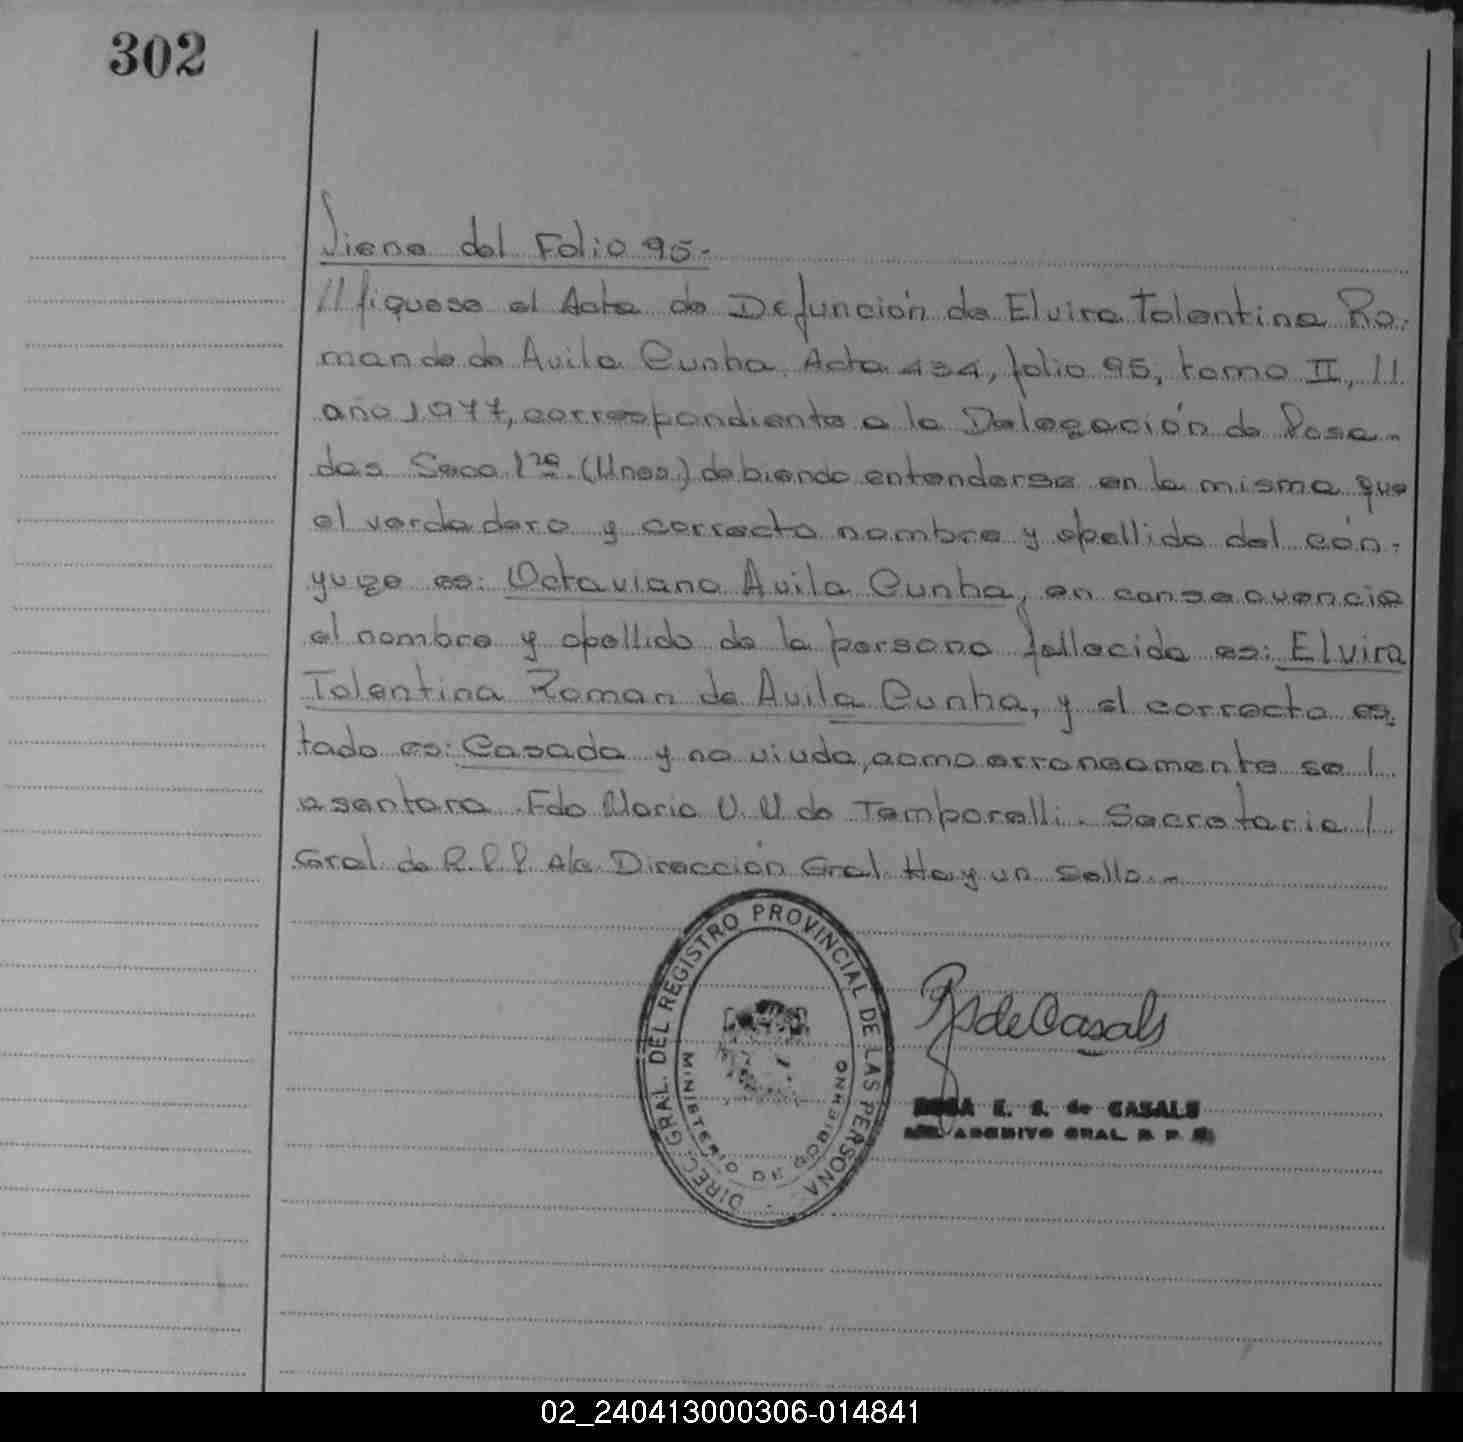 302
Viene del Folio 95.-
//fiquese el Acta de Defunción de Elvira Tolentina Ro-
man de de Avila Cunha. Acta 434, folio 95, tomo II, //
año 1977, correspondiente a la Delegación de Posa-
das Secc 1ra. (Unea) debiendo entenderse en la misma que
el verdadero y correcto nombre y apellido del cón-
yuge es: Octaviano Avila Cunha, en consecuencia
el nombre y apellido de la persona fallecida es: Elvira
Tolentina Roman de Avila Cunha, y el correcto es-
tado es: Casada y no viuda, como erroneamente se /
asentara. Fdo Maria V. V. de Temporelli. Secretaria /
Gral. de R.P.P. A/c Dirección Gral. Hay un Sello.-
DIREC. GRAL. DEL REGISTRO PROVINCIAL DE LAS PERSONA
MINISTERIO DE GOBIERNO
de Casals
ROSA E. S. de CASALS
ARCHIVO GRAL. R. P. P.
02_240413000306-014841